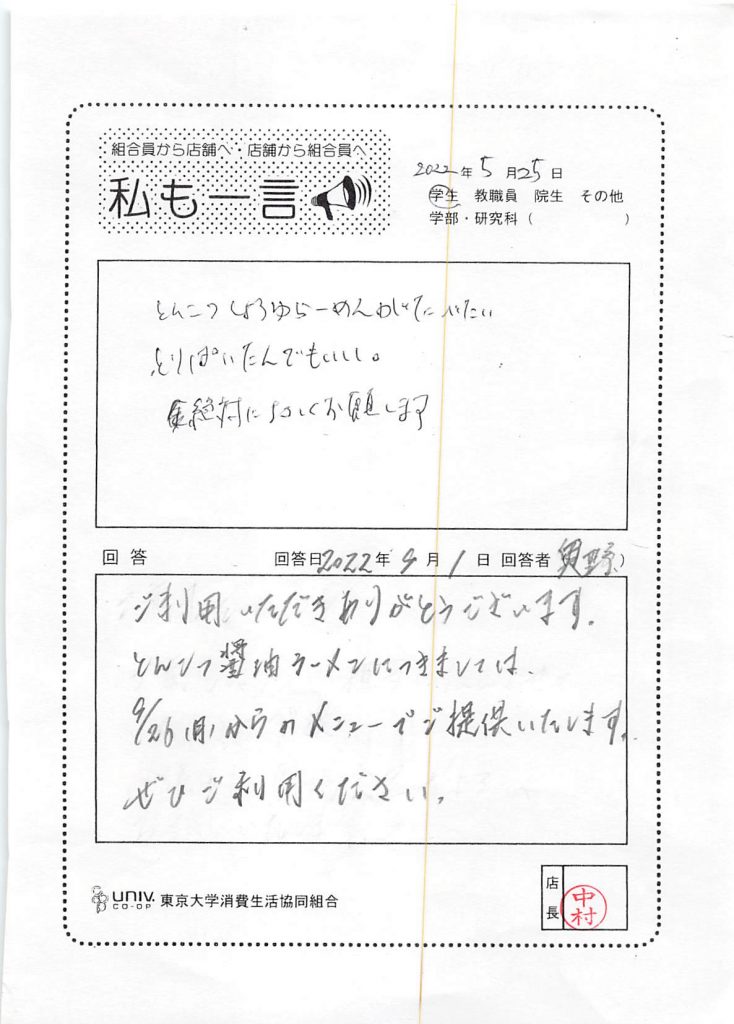 組合員から店舗へ・店舗から組合員へ
私も一言
2022年5月25日
学生 教職員 院生 その他
学部・研究科（　　　　）
とんこつしょうゆらーめんがたべたい
とりぱいたんでもいいし。
絶対によろしくお願します
回答 回答日2022年9月1日 回答者 野）
ご利用いただきありがとうございます。
とんこつ醤油ラーメンにつきましては、
9/26(月)からのメニューでご提供いたします。
ぜひご利用ください。
UNIV.
CO-OP
東京大学消費生活協同組合
店長
中村